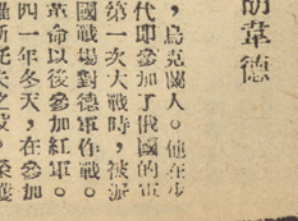 韋德
，烏克蘭人。他在少
代即參加了俄國的軍
第一次大戰時，被派
國戰場對德軍作戰。
革命以後參加紅軍。
四一年冬天，在參加
托夫之役，榮獲